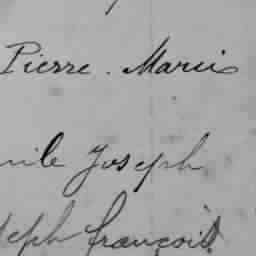 Pierre. Marie
mile Joseph
seph françois